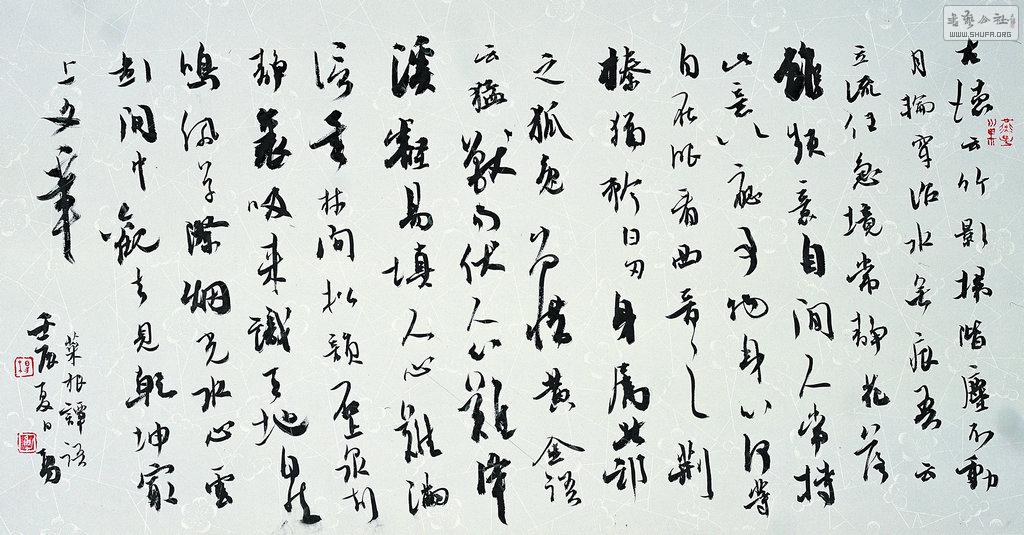 古德云竹影掃階塵不動
月輪穿沼水無痕吾云
流任急境常静花落
雖頻意自閒人常持
此意以應事物身心何等
自在眼看西晉之荆
榛猶矜白刃身屬北邙
之狐兔尚惜黄金語
云猛獸易伏人心難降
溪壑易填人心難滿
信哉林間松韻石上泉声
静裏聽来識天地自然
鳴佩草際烟光水心雲
影間中觀去見乾坤最
上文章
菜根譚語
壬辰夏日
书艺公社
WWW.SHUFA.ORG